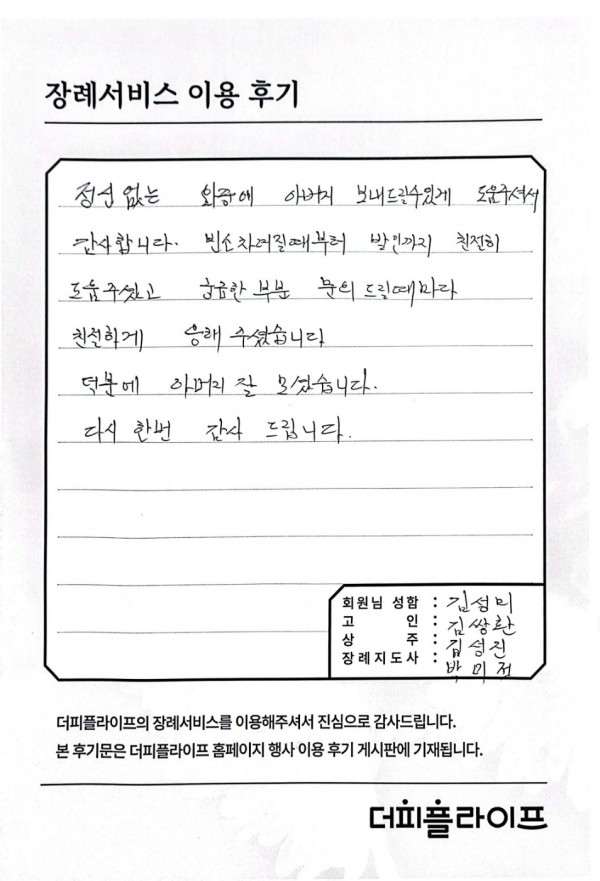 장례서비스 이용 후기
정신없는 와중에 아버지 보내드릴수있게 도움주셔서
감사합니다. 빈소차려질때부터 발인까지 친절히
도움주셨고 궁금한 부분 문의 드릴때마다
친절하게 응해 주셨습니다
덕분에 아버지 잘 모셨습니다.
다시 한번 감사 드립니다.
회원님 성함 : 김성미
고 인 : 김쌍환
상 주 : 김성진
장례지도사 : 박미전
더피플라이프의 장례서비스를 이용해주셔서 진심으로 감사드립니다.
본 후기문은 더피플라이프 홈페이지 행사 이용 후기 게시판에 기재됩니다.
더피플라이프